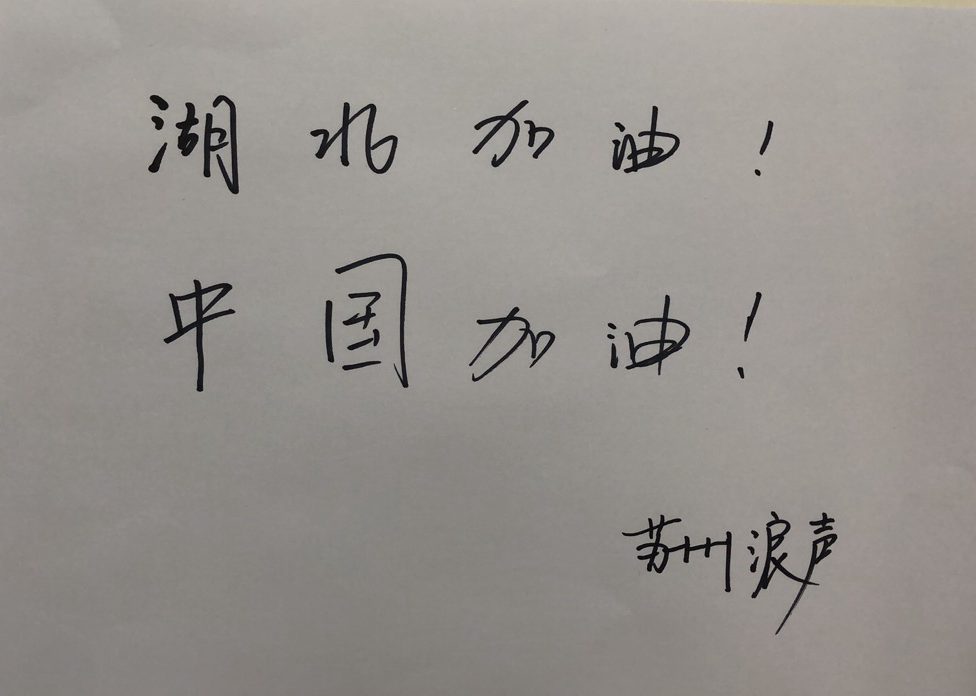 湖北加油！
中国加油！
苏州浪声